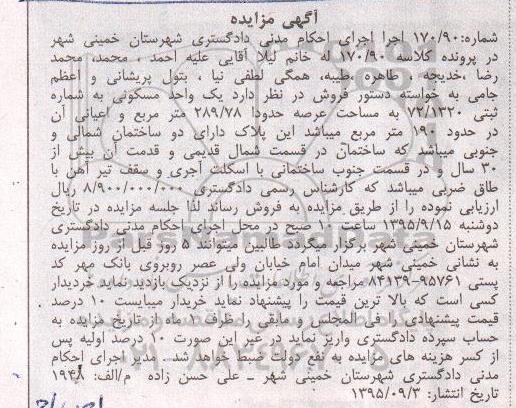 آگهی مزایده
شماره:۱۷۰/۹۰ اجرا اجرای احکام مدنی دادگستری شهرستان خمینی شهر
در پرونده کلاسه ۱۷۰/۹۰ له خانم لیلا آقایی علیه احمد ، محمد، محمد
رضا ،خدیجه ، طاهره ،طیبه، همگی لطفی نیا ، بتول پریشانی و اعظم
جامی به خواسته دستور فروش در نظر دارد یک واحد مسکونی به شماره
ثبتی ۷۲/۱۳۲۰ به مساحت عرصه حدودا ۲۸۹/۷۸ متر مربع و اعیانی آن
در حدود ۱۹۰ متر مربع میباشد این پلاک دارای دو ساختمان شمالی و
جنوبی میباشد که ساختمان در قسمت شمال قدیمی و قدمت آن بیش از
۳۰ سال و در قسمت جنوب ساختمانی با اسکلت آجری و سقف تیر آهن با
طاق ضربی میباشد که کارشناس رسمی دادگستری ۸/۹۰۰/۰۰۰/۰۰۰ ریال
ارزیابی نموده را از طریق مزایده به فروش رساند لذا جلسه مزایده در تاریخ
دوشنبه ۱۳۹۵/۹/۱۵ ساعت ۱۰ صبح در محل اجرای احکام مدنی دادگستری
شهرستان خمینی شهر برگزار میگردد طالبین میتوانند ۵ روز قبل از روز مزایده
به نشانی خمینی شهر میدان امام خیابان ولی عصر روبروی بانک مهر کد
پستی ۹۵۷۶۱-۸۴۱۳۹ مراجعه و مورد مزایده را از نزدیک بازدید نماید خریدار
کسی است که بالا ترین قیمت را پیشنهاد نماید خریدار میبایست ۱۰ درصد
قیمت پیشنهادی را فی المجلس و مابقی را ظرف ۱ ماه از تاریخ مزایده به
حساب سپرده دادگستری واریز نماید در غیر این صورت ۱۰ درصد اولیه پس
از کسر هزینه های مزایده به نفع دولت ضبط خواهد شد . مدیر اجرای احکام
مدنی دادگستری شهرستان خمینی شهر _ علی حسن زاده م/الف: ۱۹۴۸
تاریخ انتشار: ۱۳۹۵/۰۹/۳